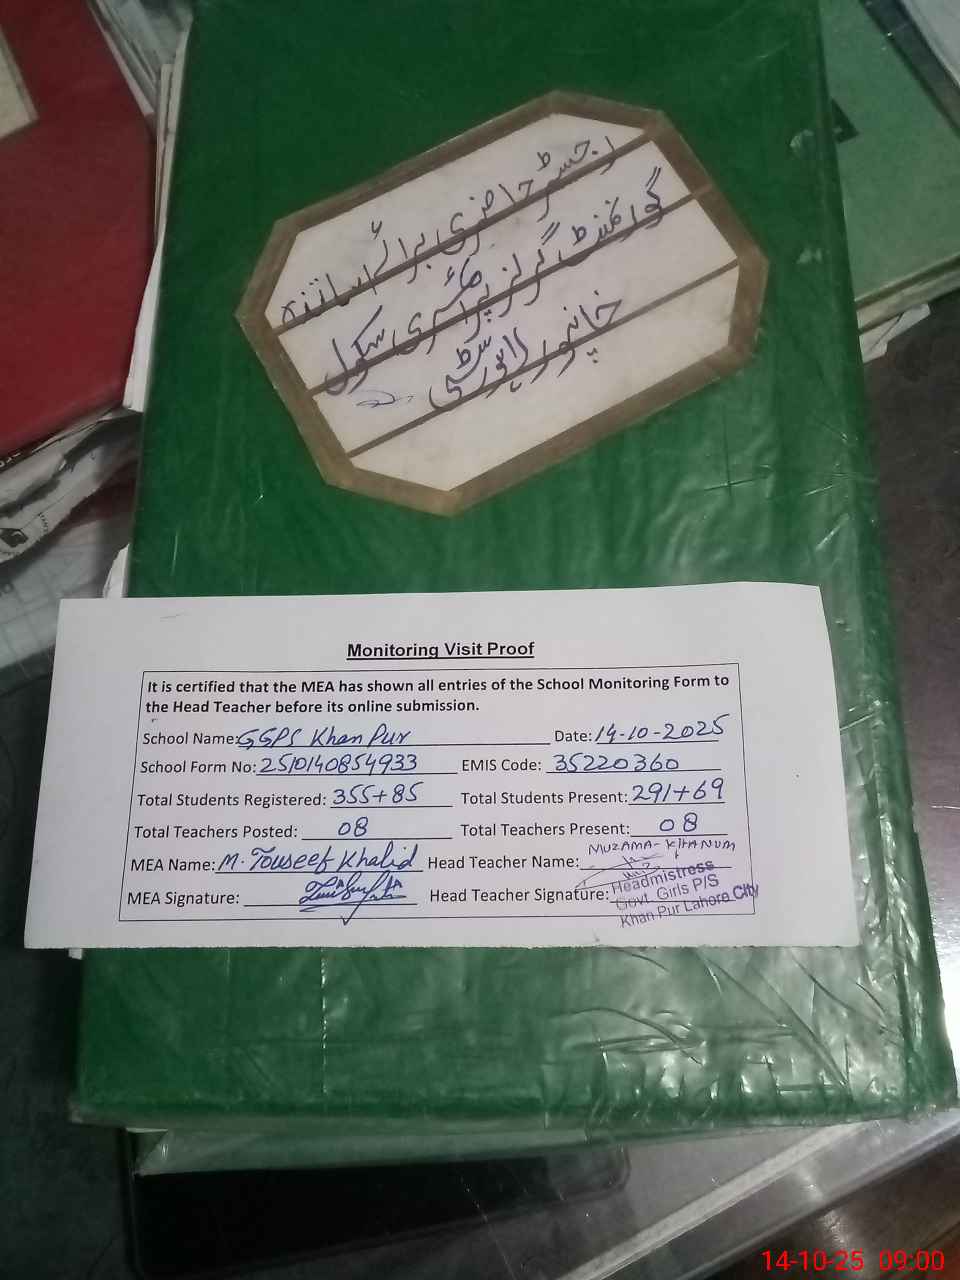 رجسٹر حاضری برائے اساتذہ
گورنمنٹ گرلز پرائمری سکول
خانپور لاہور سٹی
Monitoring Visit Proof
It is certified that the MEA has shown all entries of the School Monitoring Form to
the Head Teacher before its online submission.
School Name: GGPS Khan Pur Date: 14-10-2025
School Form No: 2510140854933 EMIS Code: 35220360
Total Students Registered: 355+85 Total Students Present: 291+69
Total Teachers Posted: 08 Total Teachers Present: 08
MEA Name: M. Touseef Khalid Head Teacher Name: MUZAMA-KHANUM
MEA Signature: Head Teacher Signature:
Headmistress
Govt. Girls P/S
Khan Pur Lahore City
14-10-25 09:00